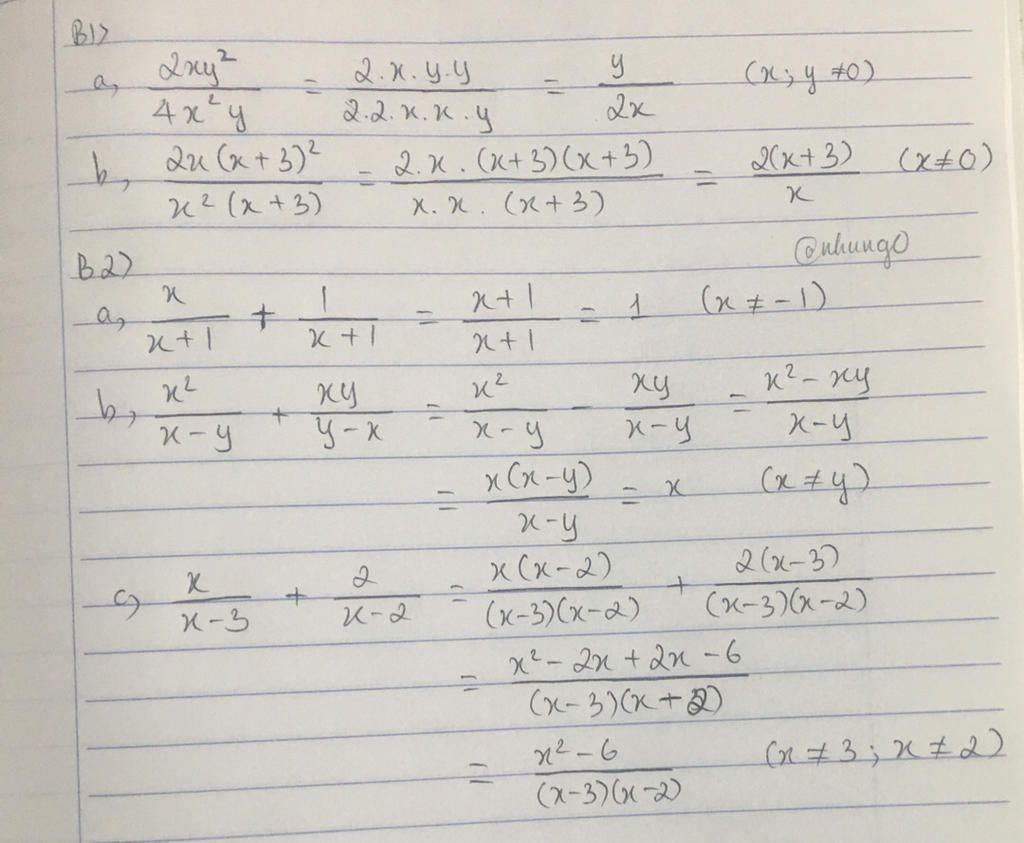 B1>
a, 2xy²/4x²y = 2.x.y.y/2.2.x.x.y = y/2x (x; y ≠0)
b, 2x(x+3)²/x²(x+3) = 2.x.(x+3)(x+3)/x.x.(x+3) = 2(x+3)/x (x≠0)
@nhung0
B2)
a, x/x+1 + 1/x+1 = x+1/x+1 = 1 (x ≠ -1)
b, x²/x-y + xy/y-x = x²/x-y - xy/x-y = x²-xy/x-y
= x(x-y)/x-y = x (x ≠ y)
c) x/x-3 + 2/x-2 = x(x-2)/(x-3)(x-2) + 2(x-3)/(x-3)(x-2)
= x²-2x+2x-6/(x-3)(x+2)
= x²-6/(x-3)(x-2) (x ≠ 3; x ≠ 2)